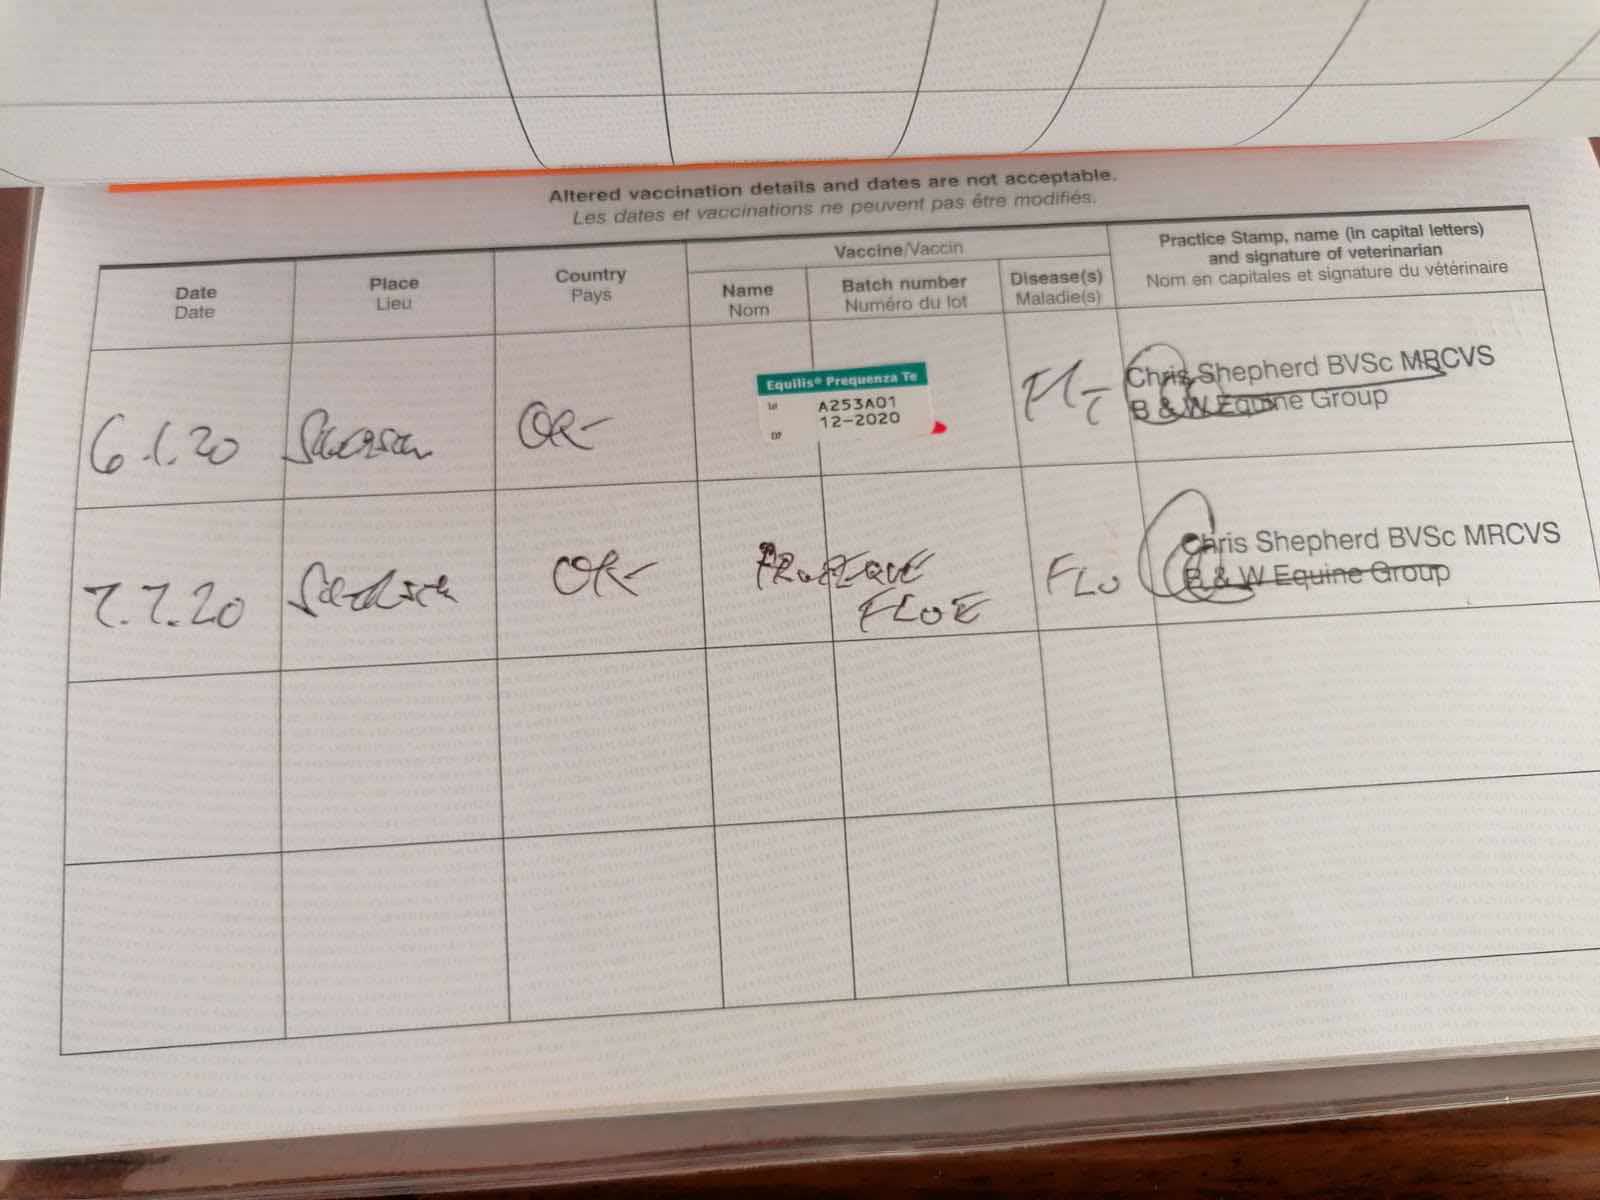 Altered vaccination details and dates are not acceptable.
Les dates et vaccinations ne peuvent pas être modifiés.
Date
Date
Place
Lieu
Country
Pays
Vaccine/Vaccin
Name
Nom
Batch number
Numéro du lot
Disease(s)
Maladie(s)
Practice Stamp, name (in capital letters)
and signature of veterinarian
Nom en capitales et signature du vétérinaire
6.1.20
Equilis® Prequenza Te
A253A01
12-2020
Chris Shepherd BVSc MRCVS
B & W Equine Group
7.7.20
FLU
Chris Shepherd BVSc MRCVS
B & W Equine Group